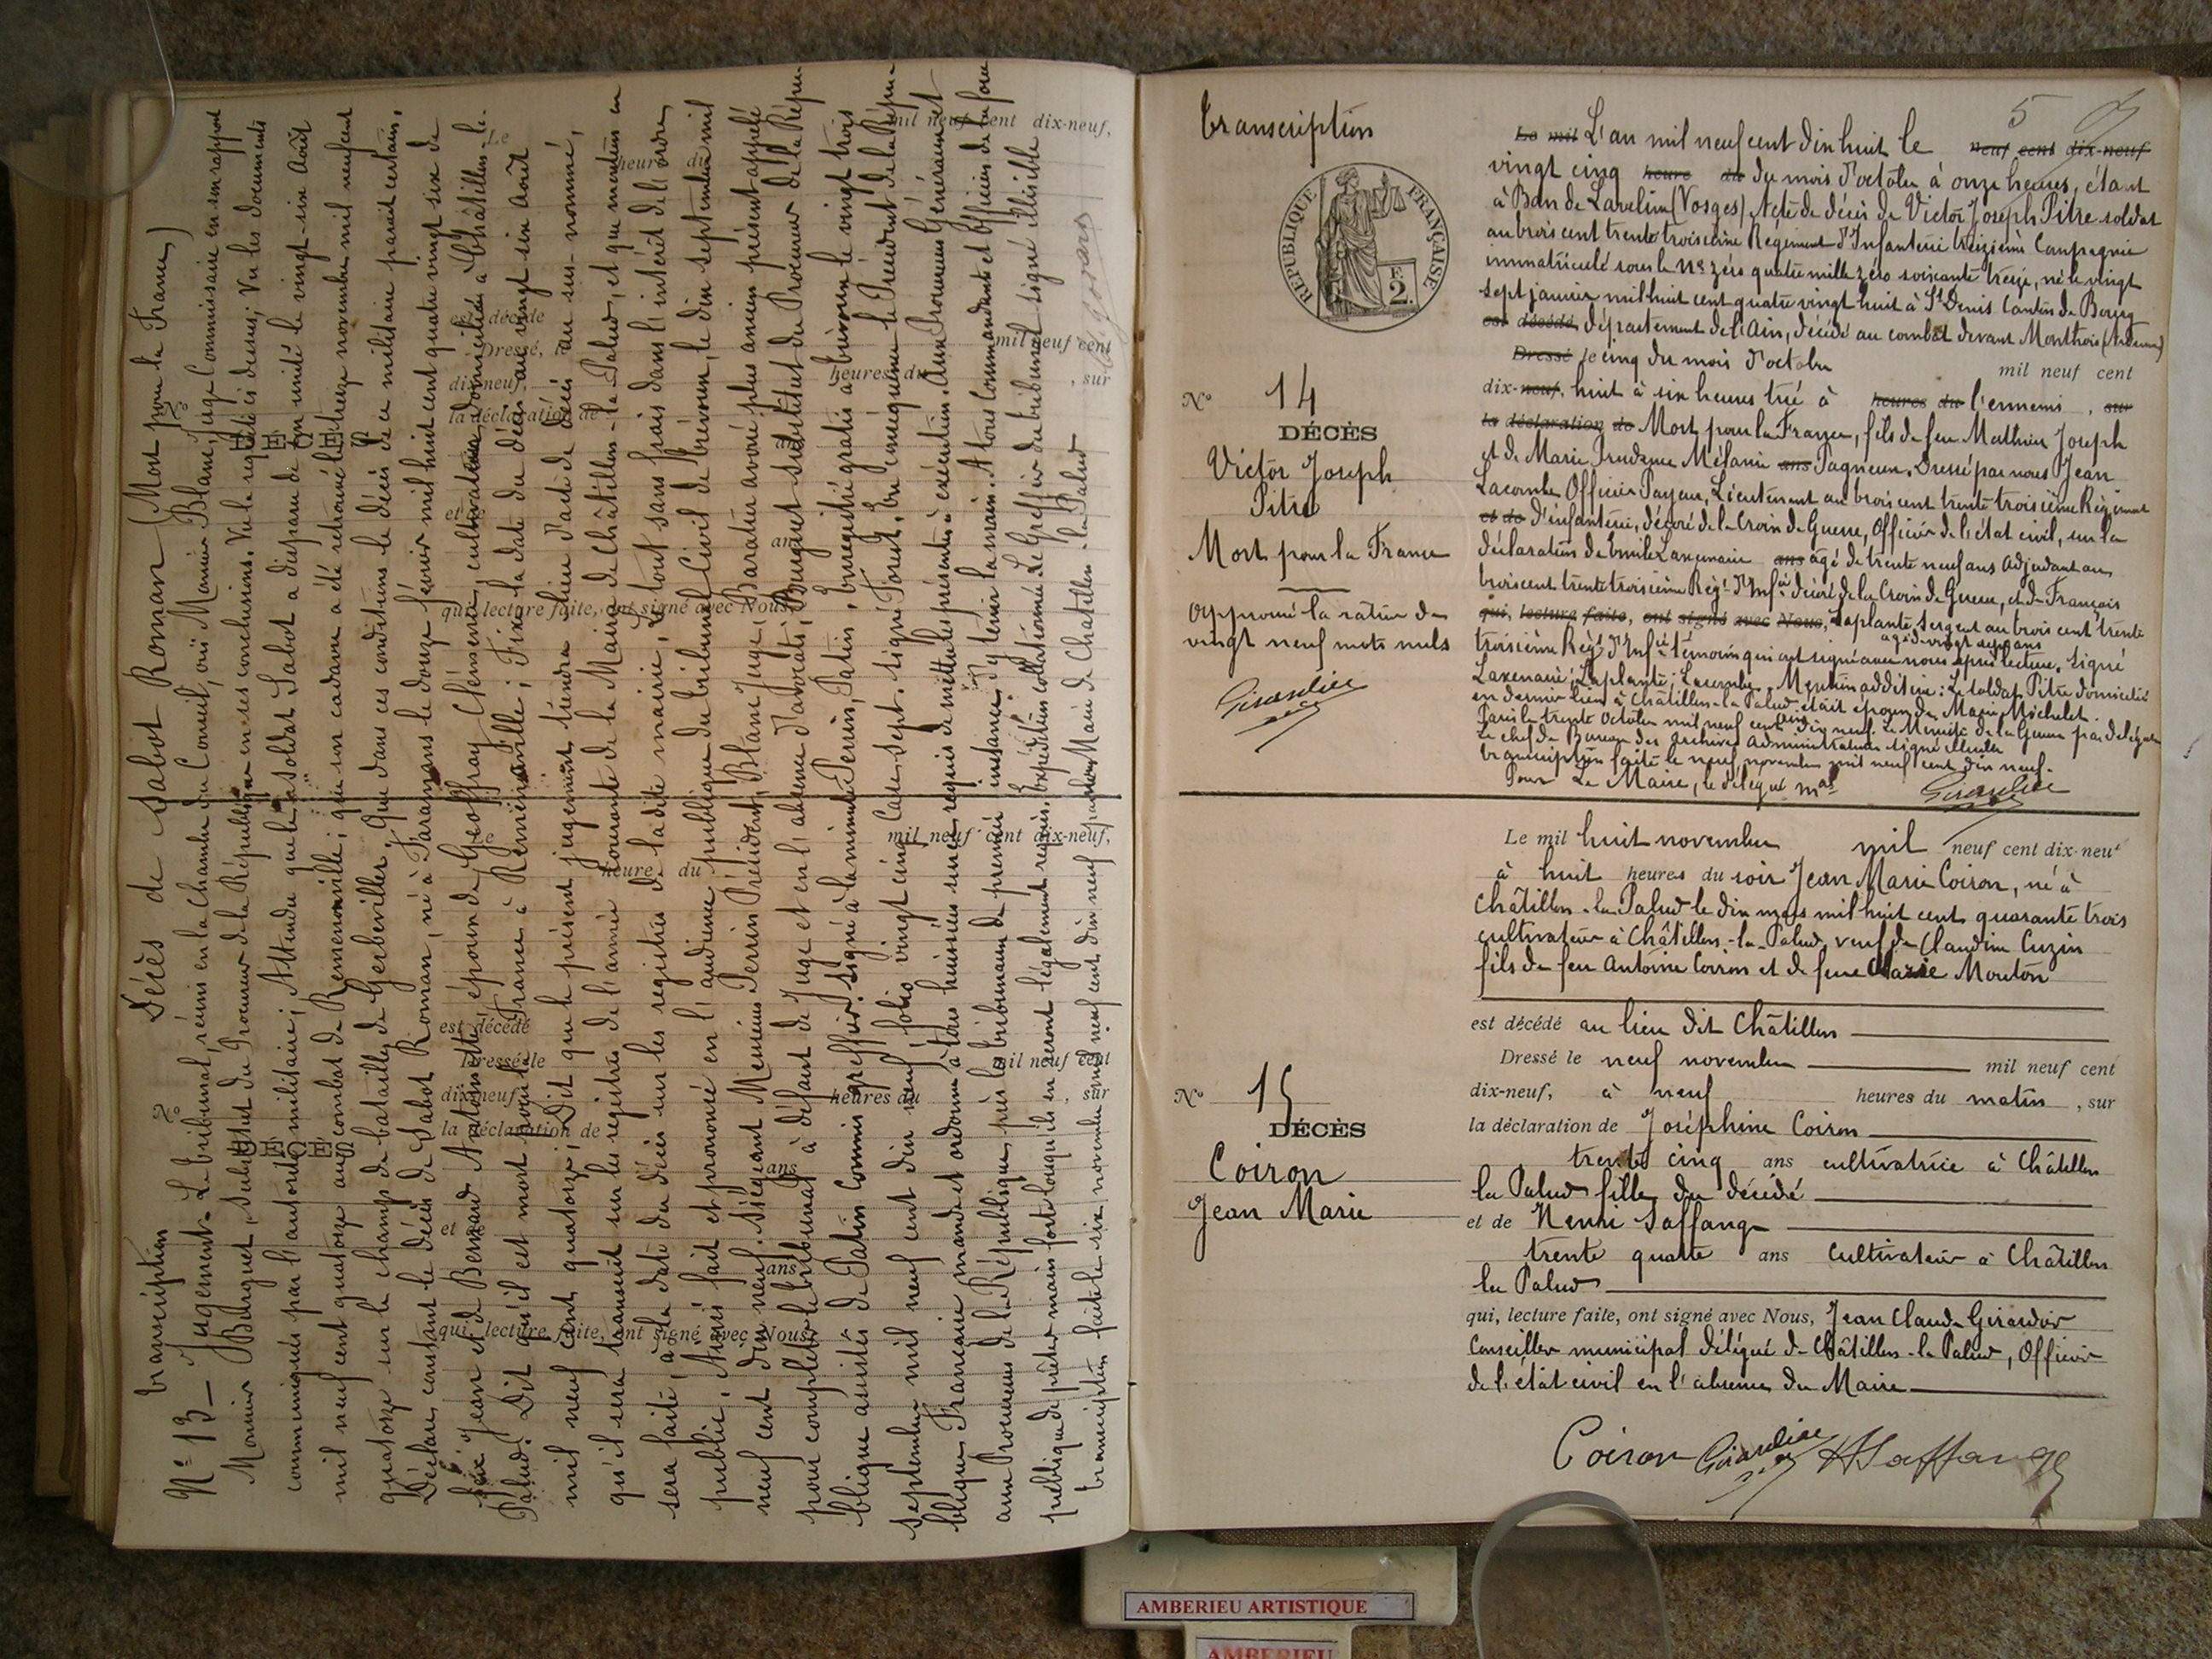 N° 13 - Transcription Décès de Sabot Roman (Mort pour la France)
Jugement - Le tribunal, réuni en la Chambre du Conseil, ouï Monsieur Blanc, juge Commissaire en son rapport
Monsieur Burguet, substitut du Procureur de la République en ses conclusions. Vu la requête ci dessus; Vu les documents
communiqués par l'autorité militaire; Attendu que le soldat Sabot a disparu de son unité le vingt-six Août
mil neuf cent quatorze au combat de Remenoville; que son cadavre a été retrouvé le treize novembre mil neuf cent
quatorze sur le champ de bataille de Gerbeviller; Que dans ces conditions le décès de ce militaire parait certain,
Déclare constant le décès de Sabot Roman, né à Faramans le douze février mil huit cent quatre vingt six de
feux Jean et de Bernard Antoinette, époux de Geoffray Clémence, cultivateur, domicilié à Châtillon-la-
Palud. Dit qu'il est mort pour la France à Reménoville; Fixe la date du décès au vingt six août
mil neuf cent quatorze; Dit que le présent jugement tiendra lieu d'acte de décès au sus-nommé,
qu'il sera transcrit sur les registres de l'année courante de la Mairie de Châtillon-la Palud, et que mention en
sera faite, à la date du décès sur les registres de ladite mairie, le tout sans frais dans l'intérêt de l'ordre
public; Ainsi fait et prononcé en l'audience publique du tribunal Civil de Trévoux, le dix septembre mil
neuf cent dix neuf. Siégeant Messieurs Perrin Président, Blanc Juge, Baratin avoué plus ancien présent appelé
pour compléter le tribunal à défaut de Juge et en l'absence d'avocats, Burguet substitut du Procureur de la Répu-
blique assistés de Patin Commis greffier. Signé à la minute Perrin, Patin, Enregistré gratis à Trévoux le vingt trois
septembre mil neuf cent dix neuf folio vingt cinq Case sept. Signé Forest. En conséquence le Président de la Répu-
blique Française mande et ordonne à tous huissiers sur ce requis de mettre les présentes à exécution. Aux Procureurs Généraux et
aux Procureurs de la République près les tribunaux de première instance d'y tenir la main. A tous Commandants et Officiers de la force
publique de prêter main forte lorsqu'ils en seront légalement requis. Expédition collationnée Le Greffier du tribunal signé illisible
Transcription faite le six novembre mil neuf cent dix neuf par nous Maire de Chatillon-la Palud
Le mil neuf cent dix-neuf,
heure du
est décédé
Dressé, le mil neuf cent
dix-neuf, heures du , sur
la déclaration de
ans
et de
ans
qui, lecture faite, ont signé avec Nous,
N°
DÉCÈS
Le mil neuf cent dix-neuf,
heure du
est décédé
Dressé le mil neuf cent
dix-neuf, heures du , sur
la déclaration de
ans
et de
ans
qui, lecture faite, ont signé avec Nous,
N°
DÉCÈS
5
Transcription
RÉPUBLIQUE FRANÇAISE
F. 2.
N° 14
DÉCÈS
Victor Joseph
Pitre
Mort pour la France
Approuvé la rature de
vingt neuf mots nuls
Le mil L'an mil neuf cent dix huit le neuf cent dix-neuf
vingt cinq heure du du mois d'octobre à onze heures, étant
à Ban de Laveline (Vosges) Acte de décès de Victor Joseph Pitre soldat
au trois cent trente troisième Régiment d'Infanterie treizième Compagnie
immatriculé sous le N° zéro quatre mille zéro soixante treize, né le vingt
sept janvier mil huit cent quatre vingt huit à St Denis Canton de Bourg
est décédé département de l'Ain, décédé au combat devant Monthois (Ardennes)
Dressé le cinq du mois d'octobre mil neuf cent
dix-neuf, huit à six heures tué à heures du l'ennemi , sur
la déclaration de Mort pour la France, fils de feu Mathieu Joseph
et de Marie Prudence Mélanie ans Pagneux. Dressé par nous Jean
Lacombe Officier Payeur, Lieutenant au trois cent trente troisième Régiment
et de d'infanterie, décoré de la Croix de Guerre, Officier de l'état civil, sur la
déclaration de Emile Laxenaire ans âgé de trente neuf ans Adjudant au
trois cent trente troisième Régt d'Infie décoré de la Croix de Guerre, et de François
qui, lecture faite, ont signé avec Nous, Laplante, Sergent au trois cent trente
âgé de vingt sept ans
troisième Régt d'Infie témoins qui ont signé avec nous après lecture. Signé
Laxenaire, Laplante, Lacombe. Mention additive: Le soldat Pitre domicilié
en dernier lieu à Châtillon-la-Palud était époux de Marie Michelet.
Paris le trente octobre mil neuf cent dix neuf. Le Ministre de la Guerre par délégation
Le chef du Bureau des Archives Administratives signé
Transcription faite le neuf novembre mil neuf cent dix neuf.
Pour Le Maire, le délégué mal
N° 15
DÉCÈS
Coiron
Jean Marie
Le mil huit novembre mil neuf cent dix-neuf
à huit heures du soir Jean Marie Coiron, né à
Châtillon-la-Palud le dix mars mil huit cent quarante trois
cultivateur à Châtillon-la-Palud, veuf de Claudine Cuzin
fils de feu Antoine Coiron et de feue Marie Mouton
est décédé au lieu dit Châtillon
Dressé le neuf novembre mil neuf cent
dix-neuf, à neuf heures du matin , sur
la déclaration de Joséphine Coiron
trente cinq ans cultivatrice à Châtillon
la Palud fille du décédé
et de Henri Saffange
trente quatre ans cultivateur à Châtillon
la Palud
qui, lecture faite, ont signé avec Nous, Jean Claude Girardier
Conseiller municipal délégué de Châtillon-la Palud, Officier
de l'état civil en l'absence du Maire
Coiron Girardier HSaffange
AMBERIEU ARTISTIQUE
AMBERIEU